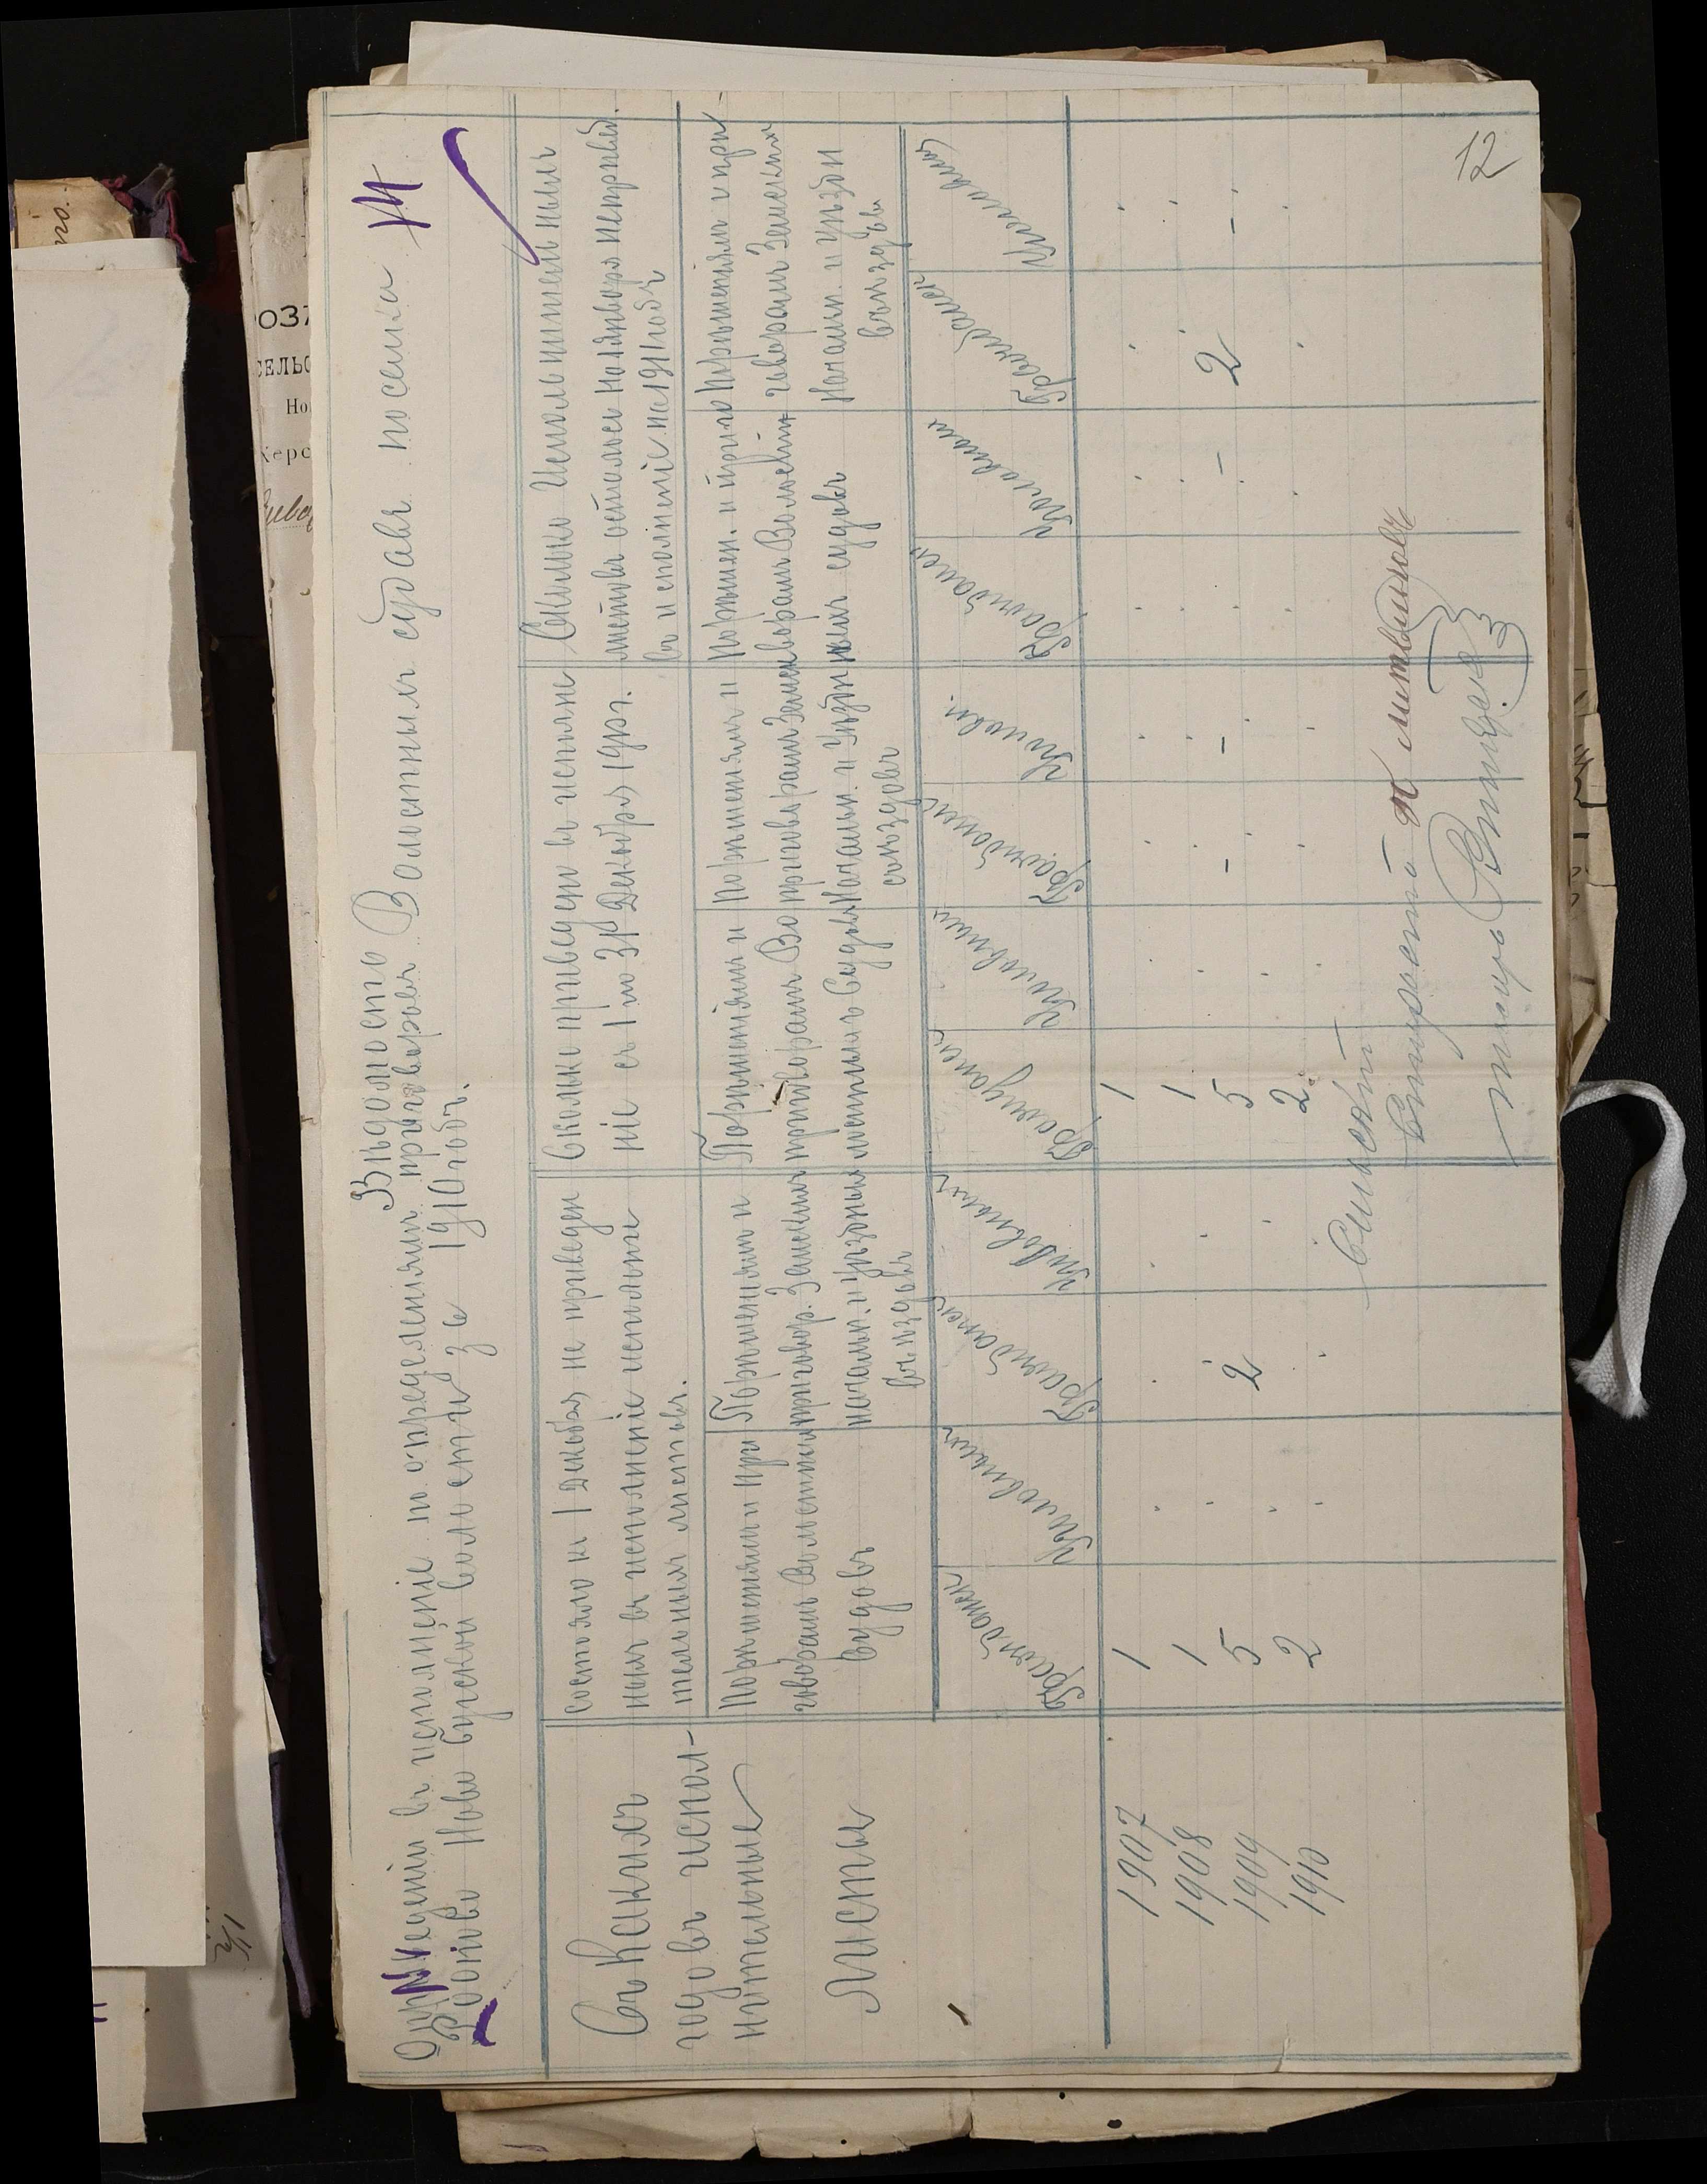 14
Вѣдомость
О приведеніи въ исполненіе по определеніямъ приговоровъ Волостныхъ судовъ поселка
Ново Бугской волости за 1910 годъ.
Съ какихъ
годовъ испол-
нительные
листы
Состояло къ 1 Декабря не приведен
ныхъ въ исполненіе исполни
тельныхъ листовъ.
Сколько приведено въ исполне
ніе съ 1 по 31 Декабря 1910 г.
Сколько Исполнительныхъ
листовъ осталось на 1 января неприввед.
въ исполненіе на 1911 годъ
По решеніямъ и при
говорамъ Волостныхъ
Судовъ
По решеніямъ и
приговор. Земскихъ
начальн. и Уѣздныхъ
съѣздовъ
По решеніямъ и
приговорамъ Во
лостныхъ Судовъ
По решеніямъ и
приговорамъ Земск
Начальн. и Уѣздн
съѣздовъ
По решен. и приго
ворамъ Волостн
ыхъ судовъ
По решеніямъ и при
говорамъ Земскихъ
Начальн. и уѣздн
съѣздовъ
Граждански
Уголовныхъ
Граждански
Уголовныхъ
Граждански
Уголовныхъ
Граждански
Уголовн.
Граждански
Уголовныхъ
Граждански
Уголовныхъ
1907 1 1
1908 1 1
1909 5 2 5 - - - 2 -
1910 2 2
Сельскій
Староста П Литвиновъ
Писарь
12